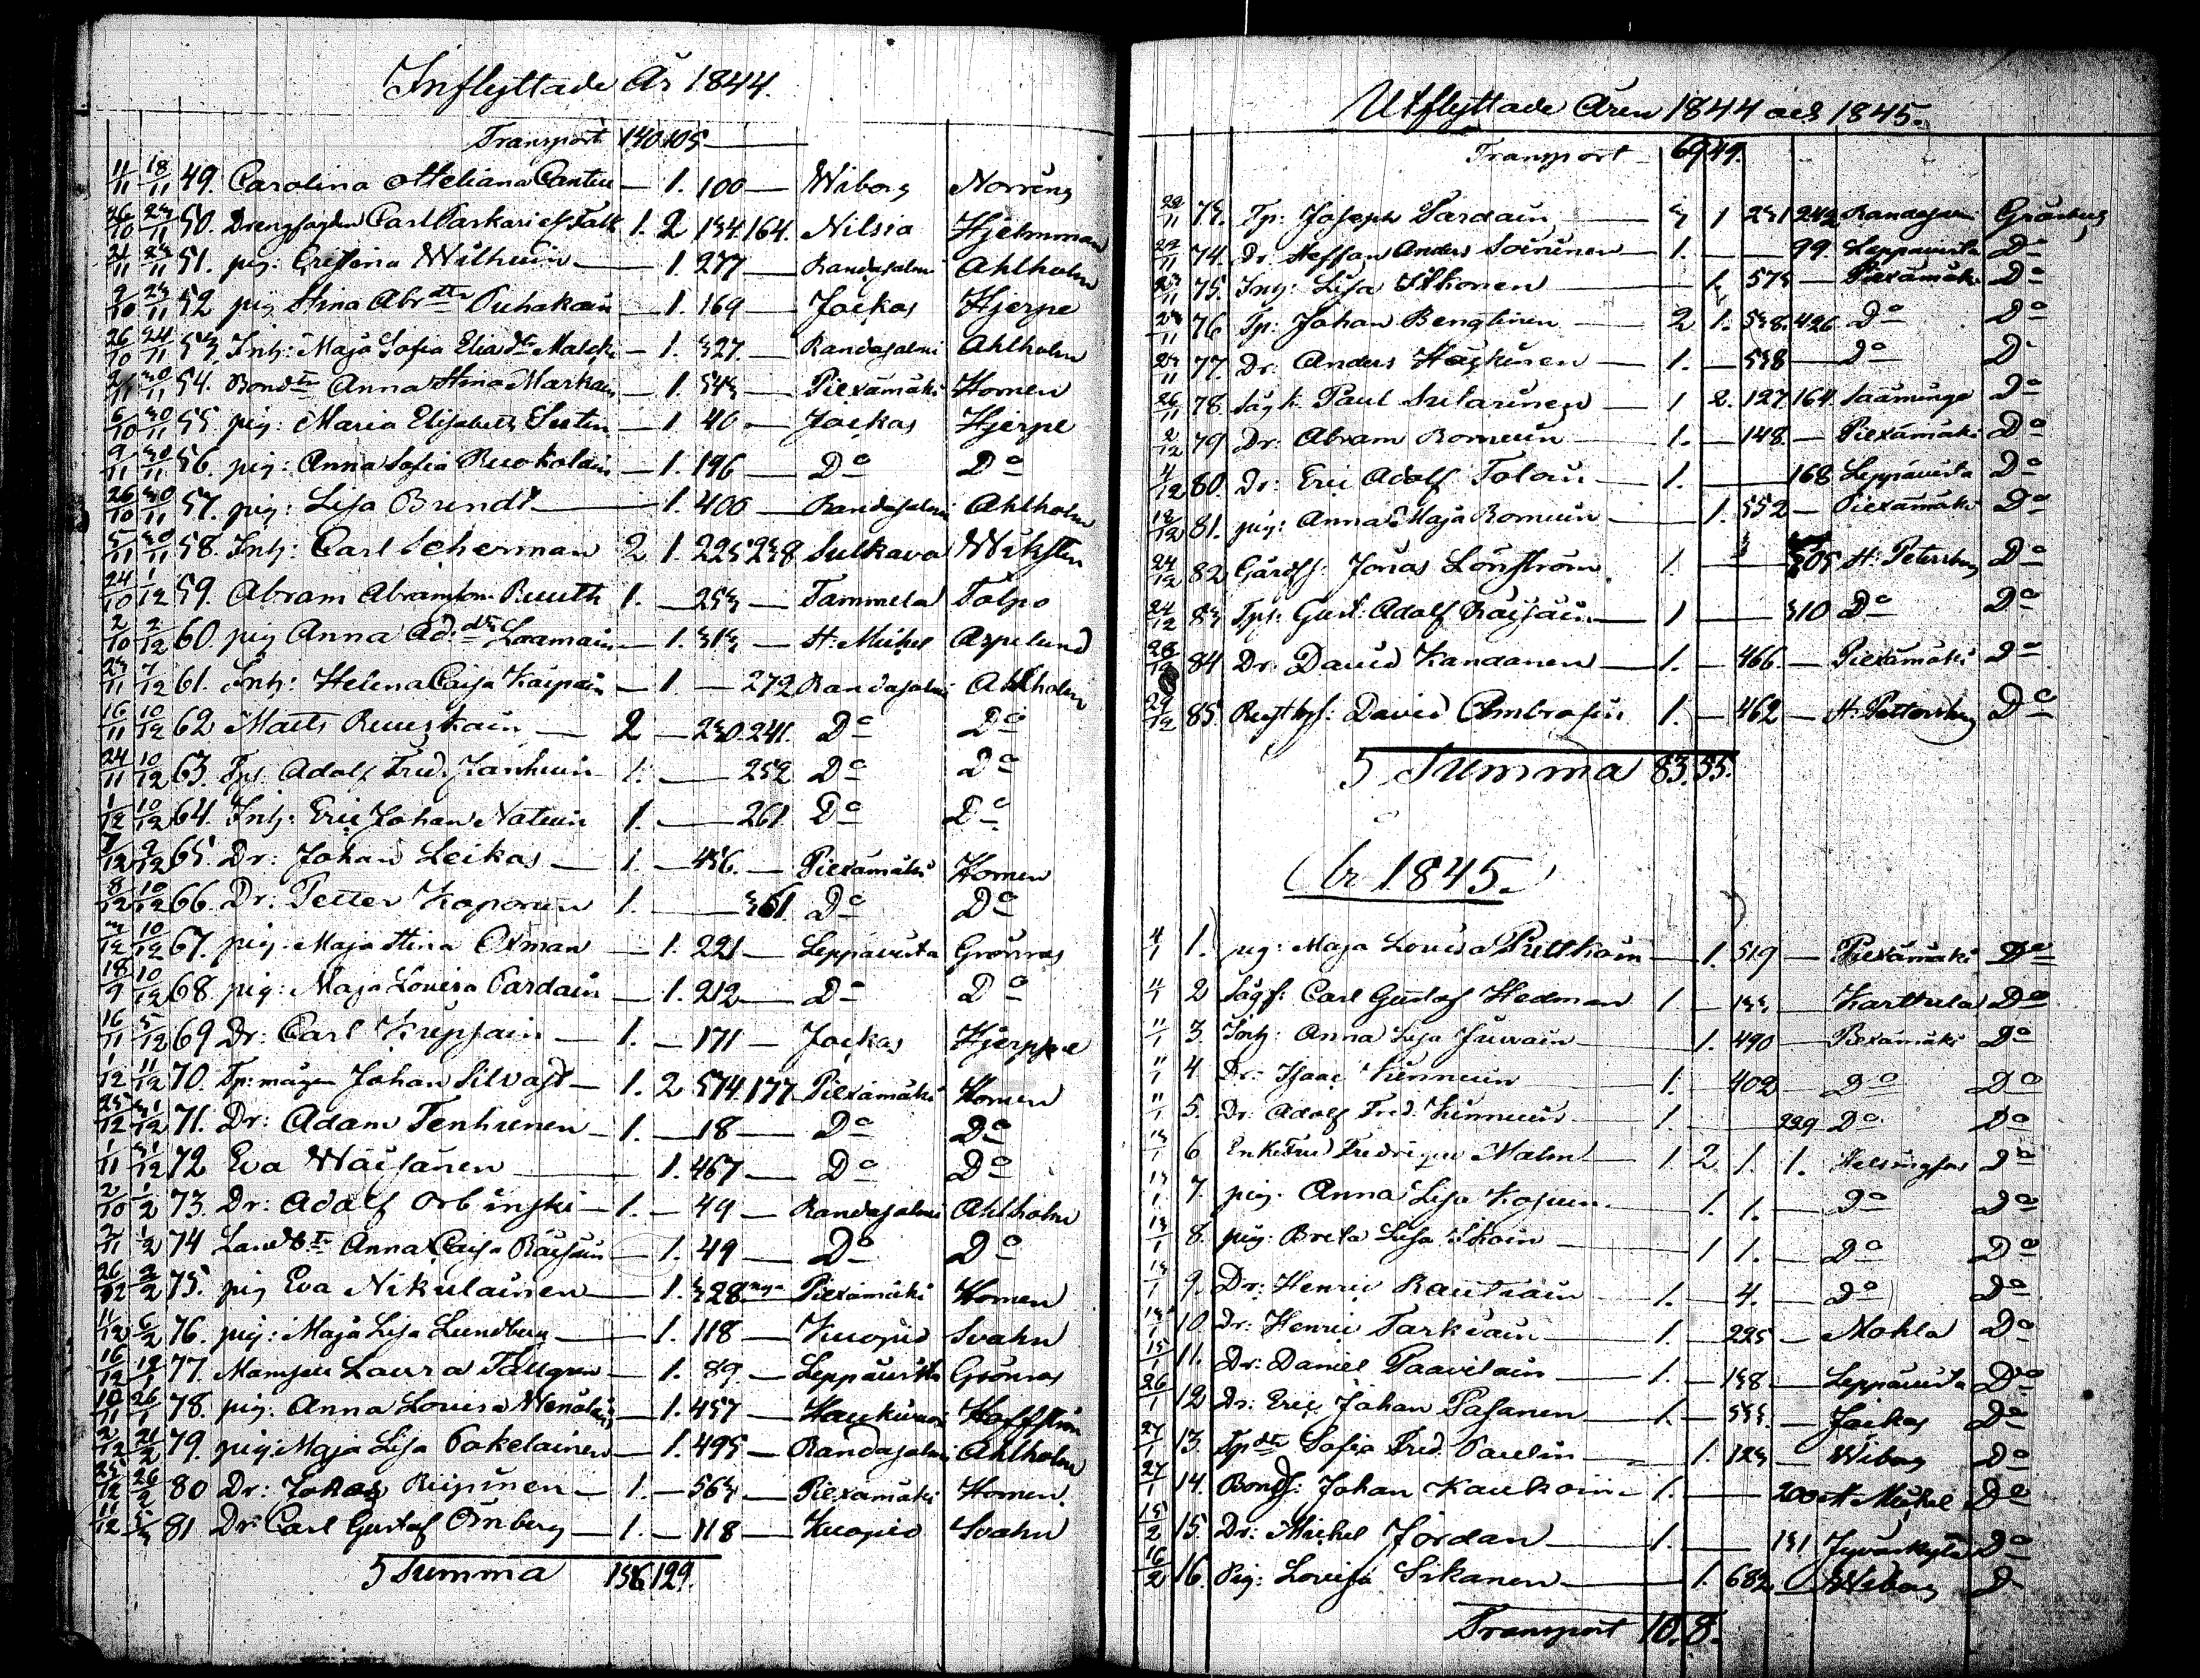 Inflyttade År 1844.
Transport 140 105
11/11 18/11 49. Carolina Meliana Cantu — 1. 100 — Wiborg Norring
26/10 23/11 50. Carl Parkari 1. 2 134. 164. Nilsia Hjelmman
21/11 23/11 51. pig: Cristina — 1. 277 — Randasalmi Ahlholm
9/10 23/11 52 pig Stina Abrdtr Puhakain — 1. 169 — Jockas Hjerpe
26/10 24/11 53. Inh: Maja Sofia Eliadtr — 1. 327 — Randasalmi Ahlholm
30/11 54. Bonddtr Anna Stina Markain — 1. 543 — Piexämäki Homen
6/10 30/11 55. pig: Maria Elisabeth — 1 40 — Jockas Hjerpe
9/11 30/11 56. pig: Anna Sofia Ruokolain — 1. 196 — Do Do
26/10 30/11 57. pig: Lisa Brendt — 1. 400 — Randasalmi Ahlholm
5/11 30/11 58. Inh: Carl Scherman 2 1. 225 238 Sulkava
24/10 1/12 59. Abram Abramson Ruuth 1. — 253 — Tammela Tolpo
2/10 2/12 60 pig Anna Ad.dtr Loamain — 1. 313 — St. Michel Aspelund
23/11 7/12 61. Inh: Helena Caisa Kaipain — 1. — 272 Randasalmi Ahlholm
16/11 10/12 62 Matts Ruuskain — 2 — 230. 241. Do Do
24/11 10/12 63. Tps. Adolf Fred. Kanhuin 1. — 252 Do Do
1/12 10/12 64. Inh: Eric Johan Natuin 1. — 261 Do Do
7/12 9/12 65. Dr: Johan Leikas — 1. — 456. — Piexämäki Homen
8/12 10/12 66. Dr: Petter Koponen 1. — 361. Do Do
3/12 10/12 67. pig: Maja Stina Oxman — 1. 221 — Leppävirta Grönros
18/9 10/12 68 pig: Maja Lovisa Pardain — 1. 212 — Do Do
16/11 5/12 69 Dr: Carl Kuppain — 1. — 171 — Jockas Hjerppe
1/12 11/12 70. Tp: mågen Johan Silvast — 1. 2 574. 177 Piexämäki Homen
25/12 31/12 71. Dr: Adam Tenhunen — 1. — 18 — Do Do
1/11 31/12 72 Eva Wäisänen — 1. 467 — Do Do
2/10 1/2 73. Dr: Adolf Orbinski — 1. — 49 — Randasalmi Ahlholm
2/11 1/2 74 Anna Caisa Räisäin — 1. 49 — Do Do
26/12 2/2 75. pig Eva Nikulainen — 1. 328 — Piexämäki Homen
11/12 6/2 76. pig: Maja Lisa Lundberg — 1. 118 — Kuopio Svahn
16/12 12/1 77. Mamsell Laura Tallgren — 1. 89. — Leppävirta Grönros
10/11 26/1 78. pig. Anna Lovisa Wenäläin — 1. 457 — Haukivuori Hoffstrén
2/12 21/2 79. pig: Maja Lisa Pakelainen — 1. 495 — Randasalmi Ahlholm
25/12 26/2 80 Dr: Johan Riipinen — 1. — 563 — Piexämäki Homen.
11/12 5/3 81 Dr: Carl Gustaf Örnberg — 1. — 118 — Kuopio Svahn
Summa 156 129.
Utflyttade Åren 1844 och 1845.
Transport 69 49.
22/11 73. Tp: Joseph Pardain 3 1 231 242 Randasalmi Grönberg
22/11 74. Dr. Steffan Anders Soininen — 1. — 99. Leppävirta Do
23/11 75. Inh: Lisa Ikkonen — 1. 573 — Piexämäki Do
23/11 76 Tp: Johan Benglinen — 2 1. 538. 426 Do Do
23/11 77. Dr: Anders Häykinen — 1. — 538 — Do Do
26/11 78. Paul Sularinen — 1 2. 127. 164. Sääminge Do
2/12 79 Dr: Abram Romuin — 1. — 148. — Piexämäki Do
4/12 80. Dr: Eric Adolf Tolain — 1. — 168 Leppävirta Do
12/12 81. pig: Anna Maja Romuin — 1. 552 — Piexämäki Do
24/12 82 Gårdss: Jonas Lönström. 1. — 305 St: Petersburg Do
24/12 83 Tps. Gust: Adolf Räisäin — 1 — 310 Do Do
28/12 84 Dr: David Kandanen — 1. — 466. — Piexämäki Do
29/12 85. David Ambrosius 1. — 462 — St: Pettersburg Do
Summa 83. 55.
År 1845.
4/1 1. pig: Maja Lovisa Pulkkain — 1. 519 — Piexämäki Do
4/1 2 Carl Gustaf Hedman 1. — 133 — Karttula Do
11/1 3. Inh: Anna Lisa Juvain 1. 490 — Piexämäki Do
11/1 4 Dr: Isaac Kinnuin 1. — 402 — Do Do
11/1 5. Dr: Adolf Fred. Kinnuin — 1. — 229 Do Do
13/1 6 Enkefru Fredrique Malm — 1. 2 1. 1. Helsingfors Do
13/1 7. pig. Anna Lisa Kosuin. 1. 1. — Do Do
13/1 8. pig: Breta Lisa Ikäin 1 1. — Do Do
13/1 9. Dr: Henric Rautiain — 1. — 4. — Do Do
13/1 10. Dr: Henric Tarkiain — 1. — 225 — Mohla Do
15/1 11. Dr: Daniel Paavilain — 1. — 138 — Leppävirta Do
26/1 12 Dr: Eric Johan Pasanen — 1. — 533. — Jockas Do
27/1 13. Tpdtr Sofia Fred. Paulin — 1. 123 — Wiborg Do
27/1 14. Bonds: Johan Kaukoin — 1. — 200 St. Michel Do
13/2 15. Dr: Michel Jordan — 1. — 131 Jyväskylä Do
16/2 16. Pig: Lovisa Sikanen — 1. 682 — Wiborg Do
Transport 10. 8.